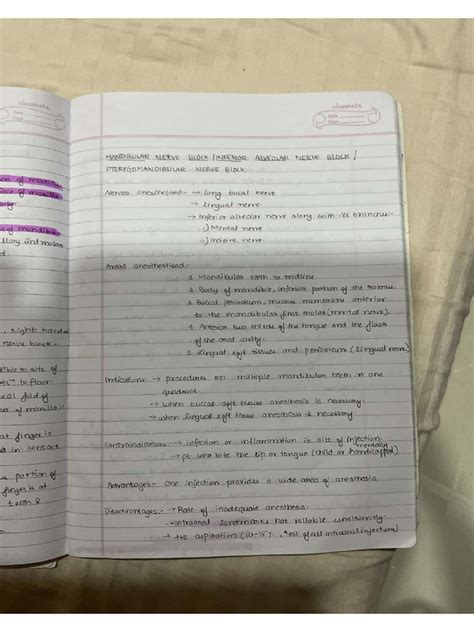 classmate
Date
Page
MANDIBULAR NERVE BLOCK / INFERIOR ALVEOLAR NERVE BLOCK /
PTERYGOMANDIBULAR NERVE BLOCK
Nerves anesthetised:- → Long buccal nerve
→ Lingual nerve
→ Inferior alveolar nerve along with its branches-
i) Mental nerve
ii) Incisive nerve.
Areas anesthetised:-
1. Mandibular teeth to midline
2. Body of mandible, inferior portion of the ramus.
3. Buccal periosteum, mucous membrane anterior
to the mandibular first molar (mental nerve)
4. Anterior two thirds of the tongue and the floor
of the oral cavity.
5. Lingual soft tissues and periosteum (Lingual nerve)
Indication:- → procedures on multiple mandibular teeth in one
quadrant
→ when buccal soft tissue anesthesia is necessary
→ when lingual soft tissue anesthesia is necessary
Contraindication:- → infection or inflammation is site of injection
→ pt bite the lip or tongue (child or mentally handicapped)
Advantages:- One injection provides a wide area of anesthesia
Disadvantages:- → Rate of inadequate anesthesia.
→ intraoral landmarks not reliable consistently.
→ +ve aspiration (10-15%), of all intraoral injections)
classmate
Date
Page
of maxilla
of maxilla
of mandible
2nd molar
, right hand
nerve block.
site of
45° to floor
fold of
of maxilla
at finger is
in contact
portion of
finger is at
teeth &